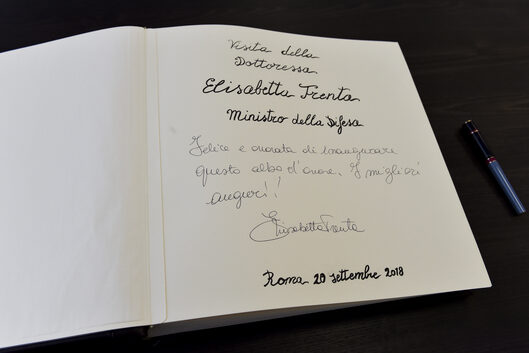 Visita della
Dottoressa
Elisabetta Trenta
Ministro della Difesa
Felice e onorata di inaugurare
questo albo d'onore. I migliori
auguri!
Elisabetta Trenta
Roma 20 settembre 2018